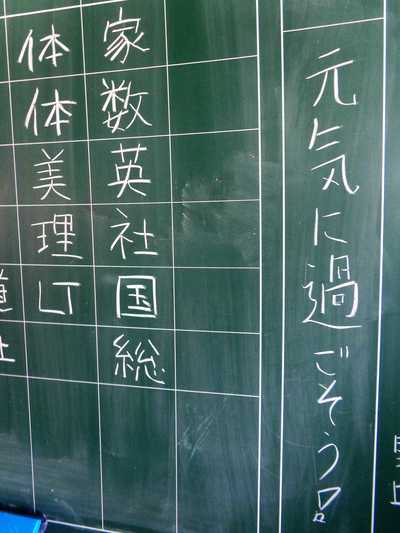 元気に過ごそう!
家数英社国総
体体美理LT